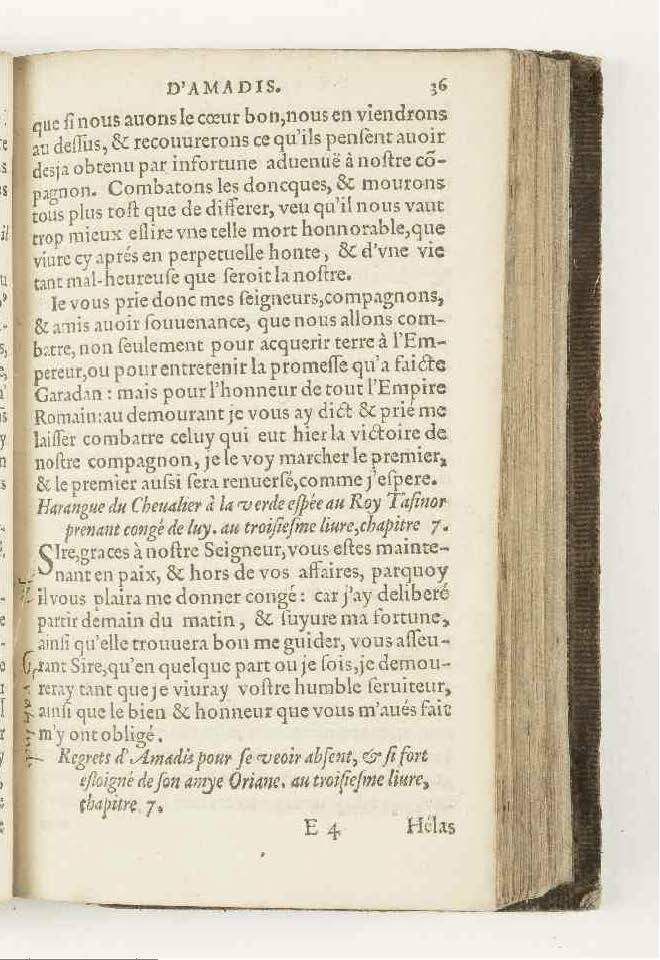 D'AMADIS. 36
que ſi nous auons le cœur bon, nous en viendrons
au deſſus, & recouurerons ce qu'ils penſent auoir
desja obtenu par infortune aduenuë à noſtre cõ-
pagnon. Combatons les doncques, & mourons
tous plus toſt que de differer, veu qu'il nous vaut
trop mieux eſlire vne telle mort honnorable, que
viure cy aprés en perpetuelle honte, & d'vne vie
tant mal-heureuſe que ſeroit la noſtre.
Ie vous prie donc mes ſeigneurs, compagnons,
& amis auoir ſouuenance, que nous allons com-
batre, non ſeulement pour acquerir terre à l'Em-
pereur, ou pour entretenir la promeſſe qu'a faicte
Garadan : mais pour l'honneur de tout l'Empire
Romain: au demourant je vous ay dict & prie me
laiſſer combatre celuy qui eut hier la victoire de
noſtre compagnon, je le voy marcher le premier,
& le premier auſſi ſera renuerſé, comme j'eſpere.
Harangue du Cheualier à la verde eſpée au Roy Taſinor
prenant congé de luy. au troiſieſme liure, chapitre 7.
SIre, graces à noſtre Seigneur, vous eſtes mainte-
nant en paix, & hors de vos affaires, parquoy
il vous plaira me donner congé : car j'ay deliberé
partir demain du matin, & ſuyure ma fortune,
ainſi qu'elle trouuera bon me guider, vous aſſeu-
rant Sire, qu'en quelque part ou je ſois, je demou-
reray tant que je viuray voſtre humble ſeruiteur,
ainſi que le bien & honneur que vous m'aués fait
m'y ont obligé.
Regrets d'Amadis pour ſe veoir abſent, & ſi fort
eſloigné de ſon amye Oriane. au troiſieſme liure,
chapitre 7.
E 4 Hélas